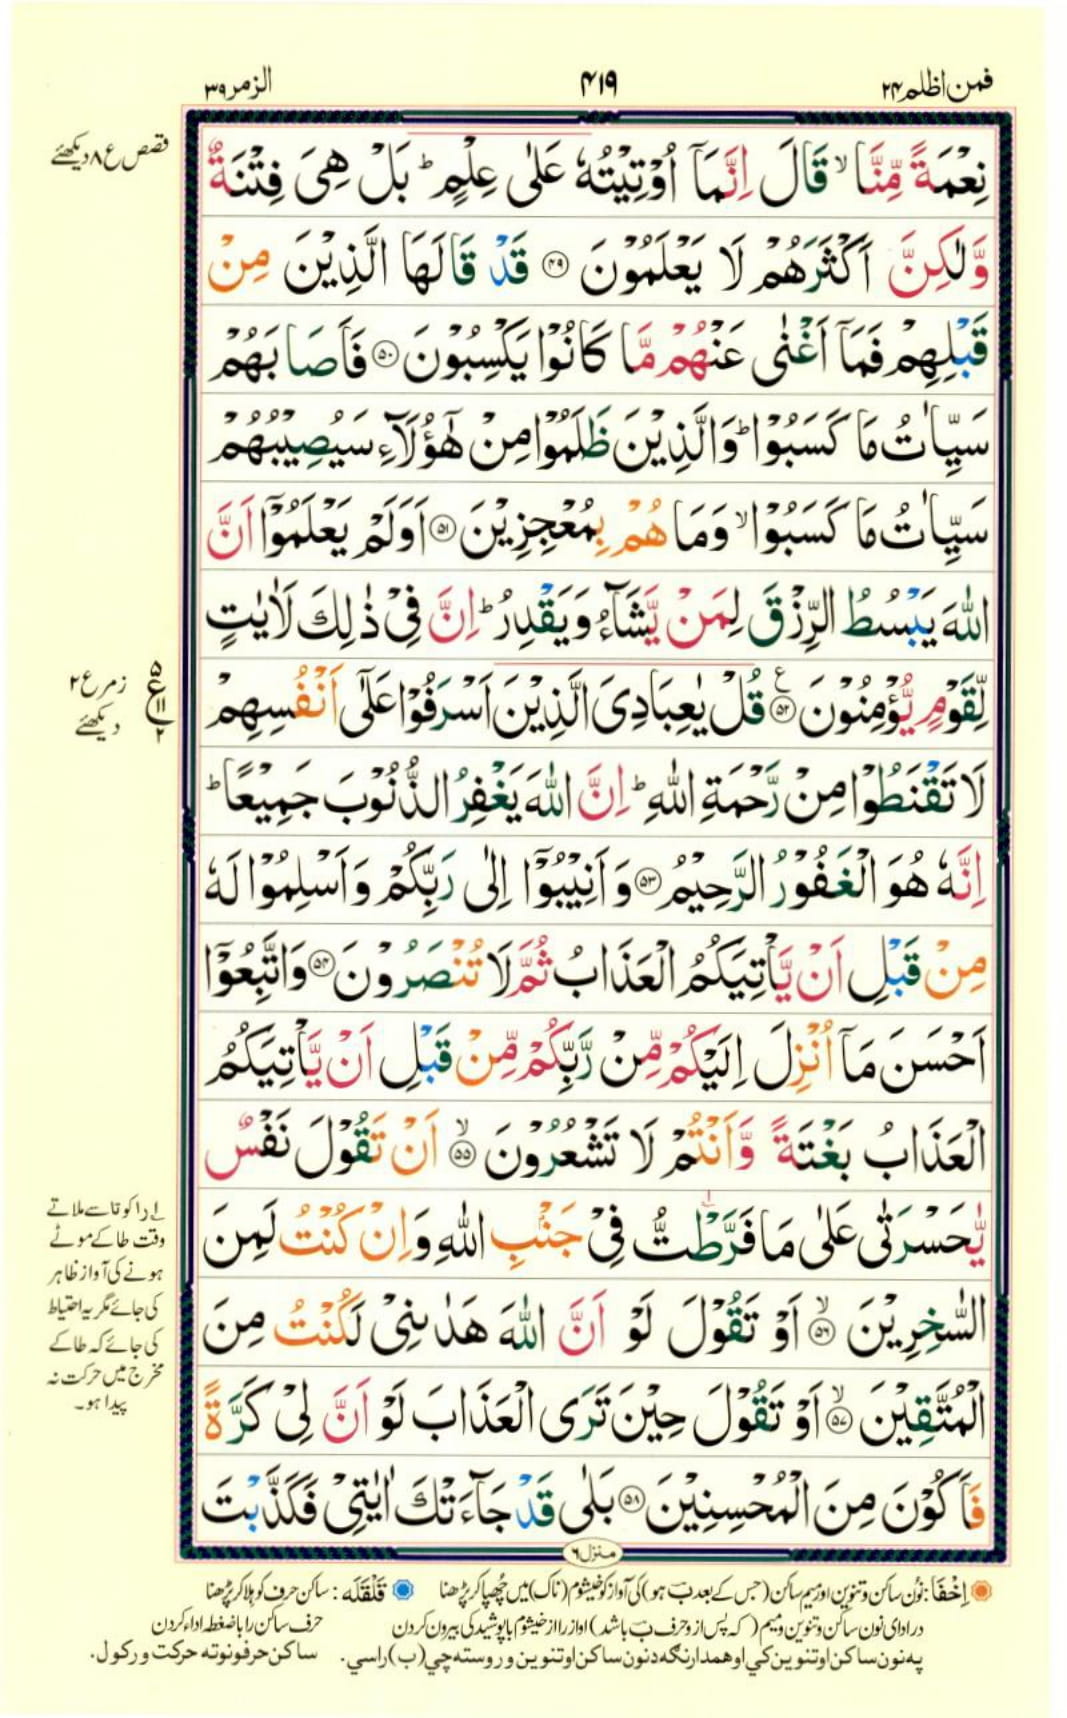 فمن اظلم ۲۴
۴۱۹
الزمر ۳۹
نِعْمَةً مِّنَّا ۙ قَالَ اِنَّمَآ اُوْتِيْتُهٗ عَلٰى عِلْمٍ ؕ بَلْ هِىَ فِتْنَةٌ
وَّلٰكِنَّ اَكْثَرَهُمْ لَا يَعْلَمُوْنَ ۝۴۹ قَدْ قَالَهَا الَّذِيْنَ مِنْ
قَبْلِهِمْ فَمَآ اَغْنٰى عَنْهُمْ مَّا كَانُوْا يَكْسِبُوْنَ ۝۵۰ فَاَصَابَهُمْ
سَيِّاٰتُ مَا كَسَبُوْا ؕ وَالَّذِيْنَ ظَلَمُوْا مِنْ هٰٓؤُلَآءِ سَيُصِيْبُهُمْ
سَيِّاٰتُ مَا كَسَبُوْا ۙ وَمَا هُمْ بِمُعْجِزِيْنَ ۝۵۱ اَوَلَمْ يَعْلَمُوْٓا اَنَّ
اللّٰهَ يَبْسُطُ الرِّزْقَ لِمَنْ يَّشَآءُ وَيَقْدِرُ ؕ اِنَّ فِىْ ذٰلِكَ لَاٰيٰتٍ
لِّقَوْمٍ يُّؤْمِنُوْنَ ۝۵۲ ع قُلْ يٰعِبَادِىَ الَّذِيْنَ اَسْرَفُوْا عَلٰٓى اَنْفُسِهِمْ
لَا تَقْنَطُوْا مِنْ رَّحْمَةِ اللّٰهِ ؕ اِنَّ اللّٰهَ يَغْفِرُ الذُّنُوْبَ جَمِيْعًا ؕ
اِنَّهٗ هُوَ الْغَفُوْرُ الرَّحِيْمُ ۝۵۳ وَاَنِيْبُوْٓا اِلٰى رَبِّكُمْ وَاَسْلِمُوْا لَهٗ
مِنْ قَبْلِ اَنْ يَّاْتِيَكُمُ الْعَذَابُ ثُمَّ لَا تُنْصَرُوْنَ ۝۵۴ وَاتَّبِعُوْٓا
اَحْسَنَ مَآ اُنْزِلَ اِلَيْكُمْ مِّنْ رَّبِّكُمْ مِّنْ قَبْلِ اَنْ يَّاْتِيَكُمُ
الْعَذَابُ بَغْتَةً وَّاَنْتُمْ لَا تَشْعُرُوْنَ ۝۵۵ ۙ اَنْ تَقُوْلَ نَفْسٌ
يّٰحَسْرَتٰى عَلٰى مَا فَرَّطْتُّ فِىْ جَنْۢبِ اللّٰهِ وَاِنْ كُنْتُ لَمِنَ
السّٰخِرِيْنَ ۝۵۶ ۙ اَوْ تَقُوْلَ لَوْ اَنَّ اللّٰهَ هَدٰىنِىْ لَكُنْتُ مِنَ
الْمُتَّقِيْنَ ۝۵۷ ۙ اَوْ تَقُوْلَ حِيْنَ تَرَى الْعَذَابَ لَوْ اَنَّ لِىْ كَرَّةً
فَاَكُوْنَ مِنَ الْمُحْسِنِيْنَ ۝۵۸ بَلٰى قَدْ جَآءَتْكَ اٰيٰتِىْ فَكَذَّبْتَ
منزل ۶
قصص ع ۸ دیکھئے
۵
ع ۱۱
۲
زمر ع ۲
دیکھئے
لے را کو تا سے ملاتے
وقت طا کے موٹے
ہونے کی آواز ظاہر
کی جائے مگر یہ احتیاط
کی جائے کہ طا کے
مخرج میں حرکت نہ
پیدا ہو۔
اِخْفَا: نون ساکن و تنوین اور میم ساکن (جس کے بعد ب ہو) کی آواز کو خیشوم (ناک) میں چھپا کر پڑھنا قَلْقَلَه: ساکن حرف کو ہلا کر پڑھنا
در ادای نون ساکن و تنوین و میم (که پس از و حرف ب باشد) اواز را از خیشوم با پوشیدگی بیرون کردن حرف ساکن را با ضغطه اداء کردن
په نون ساکن او تنوین کې او همدارنګه د نون ساکن او تنوین وروسته چې (ب) راسي. ساکن حرفونو ته حرکت ورکول.